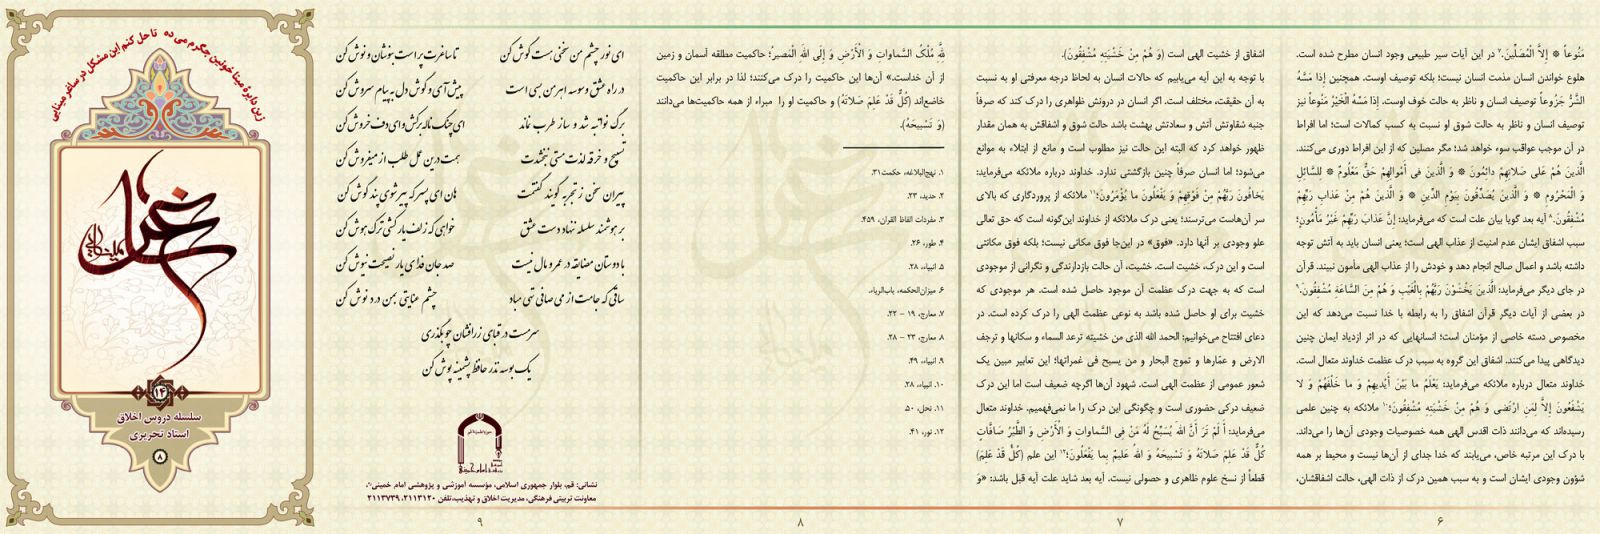 مَنُوعاً * إِلاَّ الْمُصَلِّينَ.۷ در این آیات سیر طبیعی وجود انسان مطرح شده است.
هلوع خواندن انسان مذمت انسان نیست؛ بلکه توصیف اوست. همچنین إِذَا مَسَّهُ
الشَّرُّ جَزُوعاً توصیف انسان و ناظر به حالت خوف اوست. إِذَا مَسَّهُ الْخَيْرُ مَنُوعاً نیز
توصیف انسان و ناظر به حالت شوق او نسبت به کسب کمالات است؛ اما افراط
در آن موجب عواقب سوء خواهد شد؛ مگر مصلین که از این افراط دوری می‌کنند.
الَّذينَ هُمْ عَلى صَلاتِهِمْ دائِمُونَ * وَ الَّذينَ في أَمْوالِهِمْ حَقٌّ مَعْلُومٌ * لِلسَّائِلِ
وَ الْمَحْرُومِ * وَ الَّذينَ يُصَدِّقُونَ بِيَوْمِ الدِّينِ * وَ الَّذينَ هُمْ مِنْ عَذابِ رَبِّهِمْ
مُشْفِقُونَ.۸ آیه بعد گویا بیان علت است که می‌فرماید: إِنَّ عَذابَ رَبِّهِمْ غَيْرُ مَأْمُونٍ؛
سبب اشفاق ایشان عدم امنیت از عذاب الهی است؛ یعنی انسان باید به آتش توجه
داشته باشد و اعمال صالح انجام دهد و خودش را از عذاب الهی مأمون نبیند. قرآن
در جای دیگر می‌فرماید: الَّذينَ يَخْشَوْنَ رَبَّهُمْ بِالْغَيْبِ وَ هُمْ مِنَ السَّاعَةِ مُشْفِقُونَ.۹
در بعضی از آیات دیگر قرآن اشفاق را به رابطه با خدا نسبت می‌دهد که این
مخصوص دسته خاصی از مؤمنان است؛ انسانهایی که در اثر ازدیاد ایمان چنین
دیدگاهی پیدا می‌کنند. اشفاق این گروه به سبب درک عظمت خداوند متعال است.
خداوند متعال درباره ملائکه می‌فرماید: يَعْلَمُ ما بَيْنَ أَيْديهِمْ وَ ما خَلْفَهُمْ وَ لا
يَشْفَعُونَ إِلاَّ لِمَنِ ارْتَضى وَ هُمْ مِنْ خَشْيَتِهِ مُشْفِقُونَ؛۱۰ ملائکه به چنین علمی
رسیده‌اند که می‌دانند ذات اقدس الهی همه خصوصیات وجودی آن‌ها را می‌داند.
با درک این مرتبه خاص، می‌یابند که خدا جدای از آن‌ها نیست و محیط بر همه
شؤون وجودی ایشان است و به سبب همین درک از ذات الهی، حالت اشفاقشان،
۶
اشفاق از خشیت الهی است (وَ هُمْ مِنْ خَشْيَتِهِ مُشْفِقُونَ).
با توجه به این آیه می‌یابیم که حالات انسان به لحاظ درجه معرفتی او به نسبت
به آن حقیقت، مختلف است. اگر انسان در درونش ظواهری را درک کند که صرفاً
جنبه شقاوتش آتش و سعادتش بهشت باشد حالت شوق و اشفاقش به همان مقدار
ظهور خواهد کرد که البته این حالت نیز مطلوب است و مانع از ابتلاء به موانع
می‌شود؛ اما انسان صرفاً چنین بازگشتی ندارد. خداوند درباره ملائکه می‌فرماید:
يَخافُونَ رَبَّهُمْ مِنْ فَوْقِهِمْ وَ يَفْعَلُونَ ما يُؤْمَرُونَ؛۱۱ ملائکه از پروردگاری که بالای
سر آن‌هاست می‌ترسند؛ یعنی درک ملائکه از خداوند این‌گونه است که حق تعالی
علو وجودی بر آنها دارد. «فوق» در این‌جا فوق مکانی نیست؛ بلکه فوق مکانتی
است و این درک، خشیت است. خشیت، آن حالت بازدارندگی و نگرانی از موجودی
است که به جهت درک عظمت آن موجود حاصل شده است. هر موجودی که
خشیت برای او حاصل شده باشد به نوعی عظمت الهی را درک کرده است. در
دعای افتتاح می‌خوانیم: الحمد الله الذی من خشیته ترعد السماء و سکانها و ترجف
الارض و عمّارها و تموج البحار و من یسبح فی غمراتها؛ این تعابیر مبین یک
شعور عمومی از عظمت الهی است. شهود آن‌ها اگرچه ضعیف است اما این درک
ضعیف درکی حضوری است و چگونگی این درک را ما نمی‌فهمیم. خداوند متعال
می‌فرماید: أَ لَمْ تَرَ أَنَّ اللهَ يُسَبِّحُ لَهُ مَنْ فِي السَّماواتِ وَ الْأَرْضِ وَ الطَّيْرُ صَافَّاتٍ
كُلٌّ قَدْ عَلِمَ صَلاتَهُ وَ تَسْبيحَهُ وَ اللهُ عَليمٌ بِما يَفْعَلُونَ؛۱۲ این علم (كُلٌّ قَدْ عَلِمَ)
قطعاً از نسخ علوم ظاهری و حصولی نیست. آیه بعد شاید علت آیه قبل باشد: «وَ
۷
لِلَّهِ مُلْكُ السَّماواتِ وَ الْأَرْضِ وَ إِلَى اللهِ الْمَصيرُ؛ حاکمیت مطلقه آسمان و زمین
از آن خداست.» آن‌ها این حاکمیت را درک می‌کنند؛ لذا در برابر این حاکمیت
خاضع‌اند (كُلٌّ قَدْ عَلِمَ صَلاتَهُ) و حاکمیت او را مبراء از همه حاکمیت‌ها می‌دانند
(وَ تَسْبيحَهُ).
۱. نهج‌البلاغه، حکمت ۳۱.
۲. حدید، ۲۳.
۳. مفردات الفاظ القران، ۴۵۹.
۴. طور، ۲۶.
۵. انبیاء، ۲۸.
۶. میزان‌الحکمه، باب‌الریاء.
۷. معارج، ۱۹ - ۲۲.
۸. معارج، ۲۳ - ۲۸.
۹. انبیاء، ۴۹.
۱۰. انبیاء، ۲۸.
۱۱. نحل، ۵۰.
۱۲. نور، ۴۱.
۸
ای نور چشم من سخنی هست گوش کن تا ساغرت پر است بنوشان و نوش کن
در راه عشق وسوسه اهرمن بسی است پیش آی و گوش دل به پیام سروش کن
برگ نوا تبه شد و ساز طرب نماند ای چنگ ناله برکش و ای دف خروش کن
تسبیح و خرقه لذت مستی نبخشدت همت درین عمل طلب از میفروش کن
پیران سخن ز تجربه گویند گفتمت هان ای پسر که پیر شوی پند گوش کن
بر هوشمند سلسله ننهاد دست عشق خواهی که زلف یار کشی ترک هوش کن
با دوستان مضایقه در عمر و مال نیست صد جان فدای یار نصیحت نیوش کن
ساقی که جامت از می صافی تهی مباد چشم عنایتی بمن درد نوش کن
سرمست در قبای زرافشان چو بگذری
یک بوسه نذر حافظ پشمینه پوش کن
نشانی: قم، بلوار جمهوری اسلامی، مؤسسه آموزشی و پژوهشی امام خمینی
معاونت تربیتی فرهنگی، مدیریت اخلاق و تهذیب،تلفن ۲۱۱۳۱۲۰، ۲۱۱۳۷۳۹
۹
زین دایرهٔ مینا خونین جگرم می ده تا حل کنم این مشکل در ساغر مینایی
۱۴
سلسله دروس اخلاق
استاد تحریری
۸